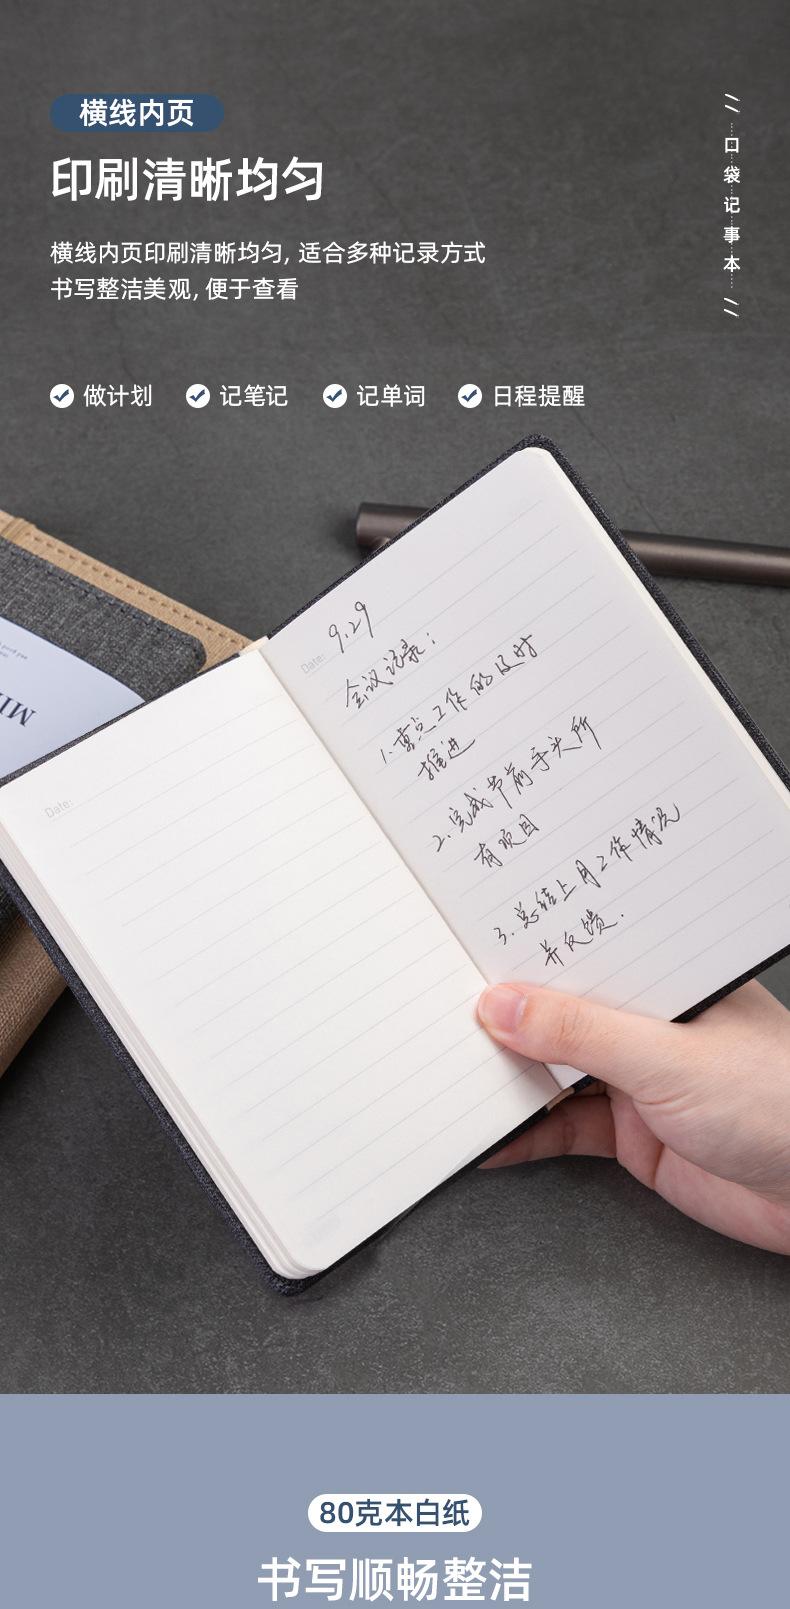 横线内页
印刷清晰均匀
横线内页印刷清晰均匀, 适合多种记录方式
书写整洁美观, 便于查看
做计划 记笔记 记单词 日程提醒
口袋记事本
Date: 9.29
会议记录：
1.重点工作的及时
推进
2.完成节前手头所
有项目
3.总结上月工作情况
并反馈.
Date:
80克本白纸
书写顺畅整洁